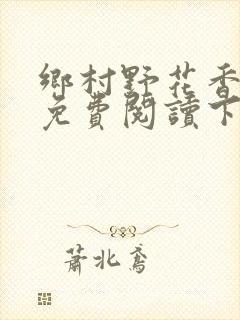 鄉村野花香
免費閱讀下
蕭北鳶